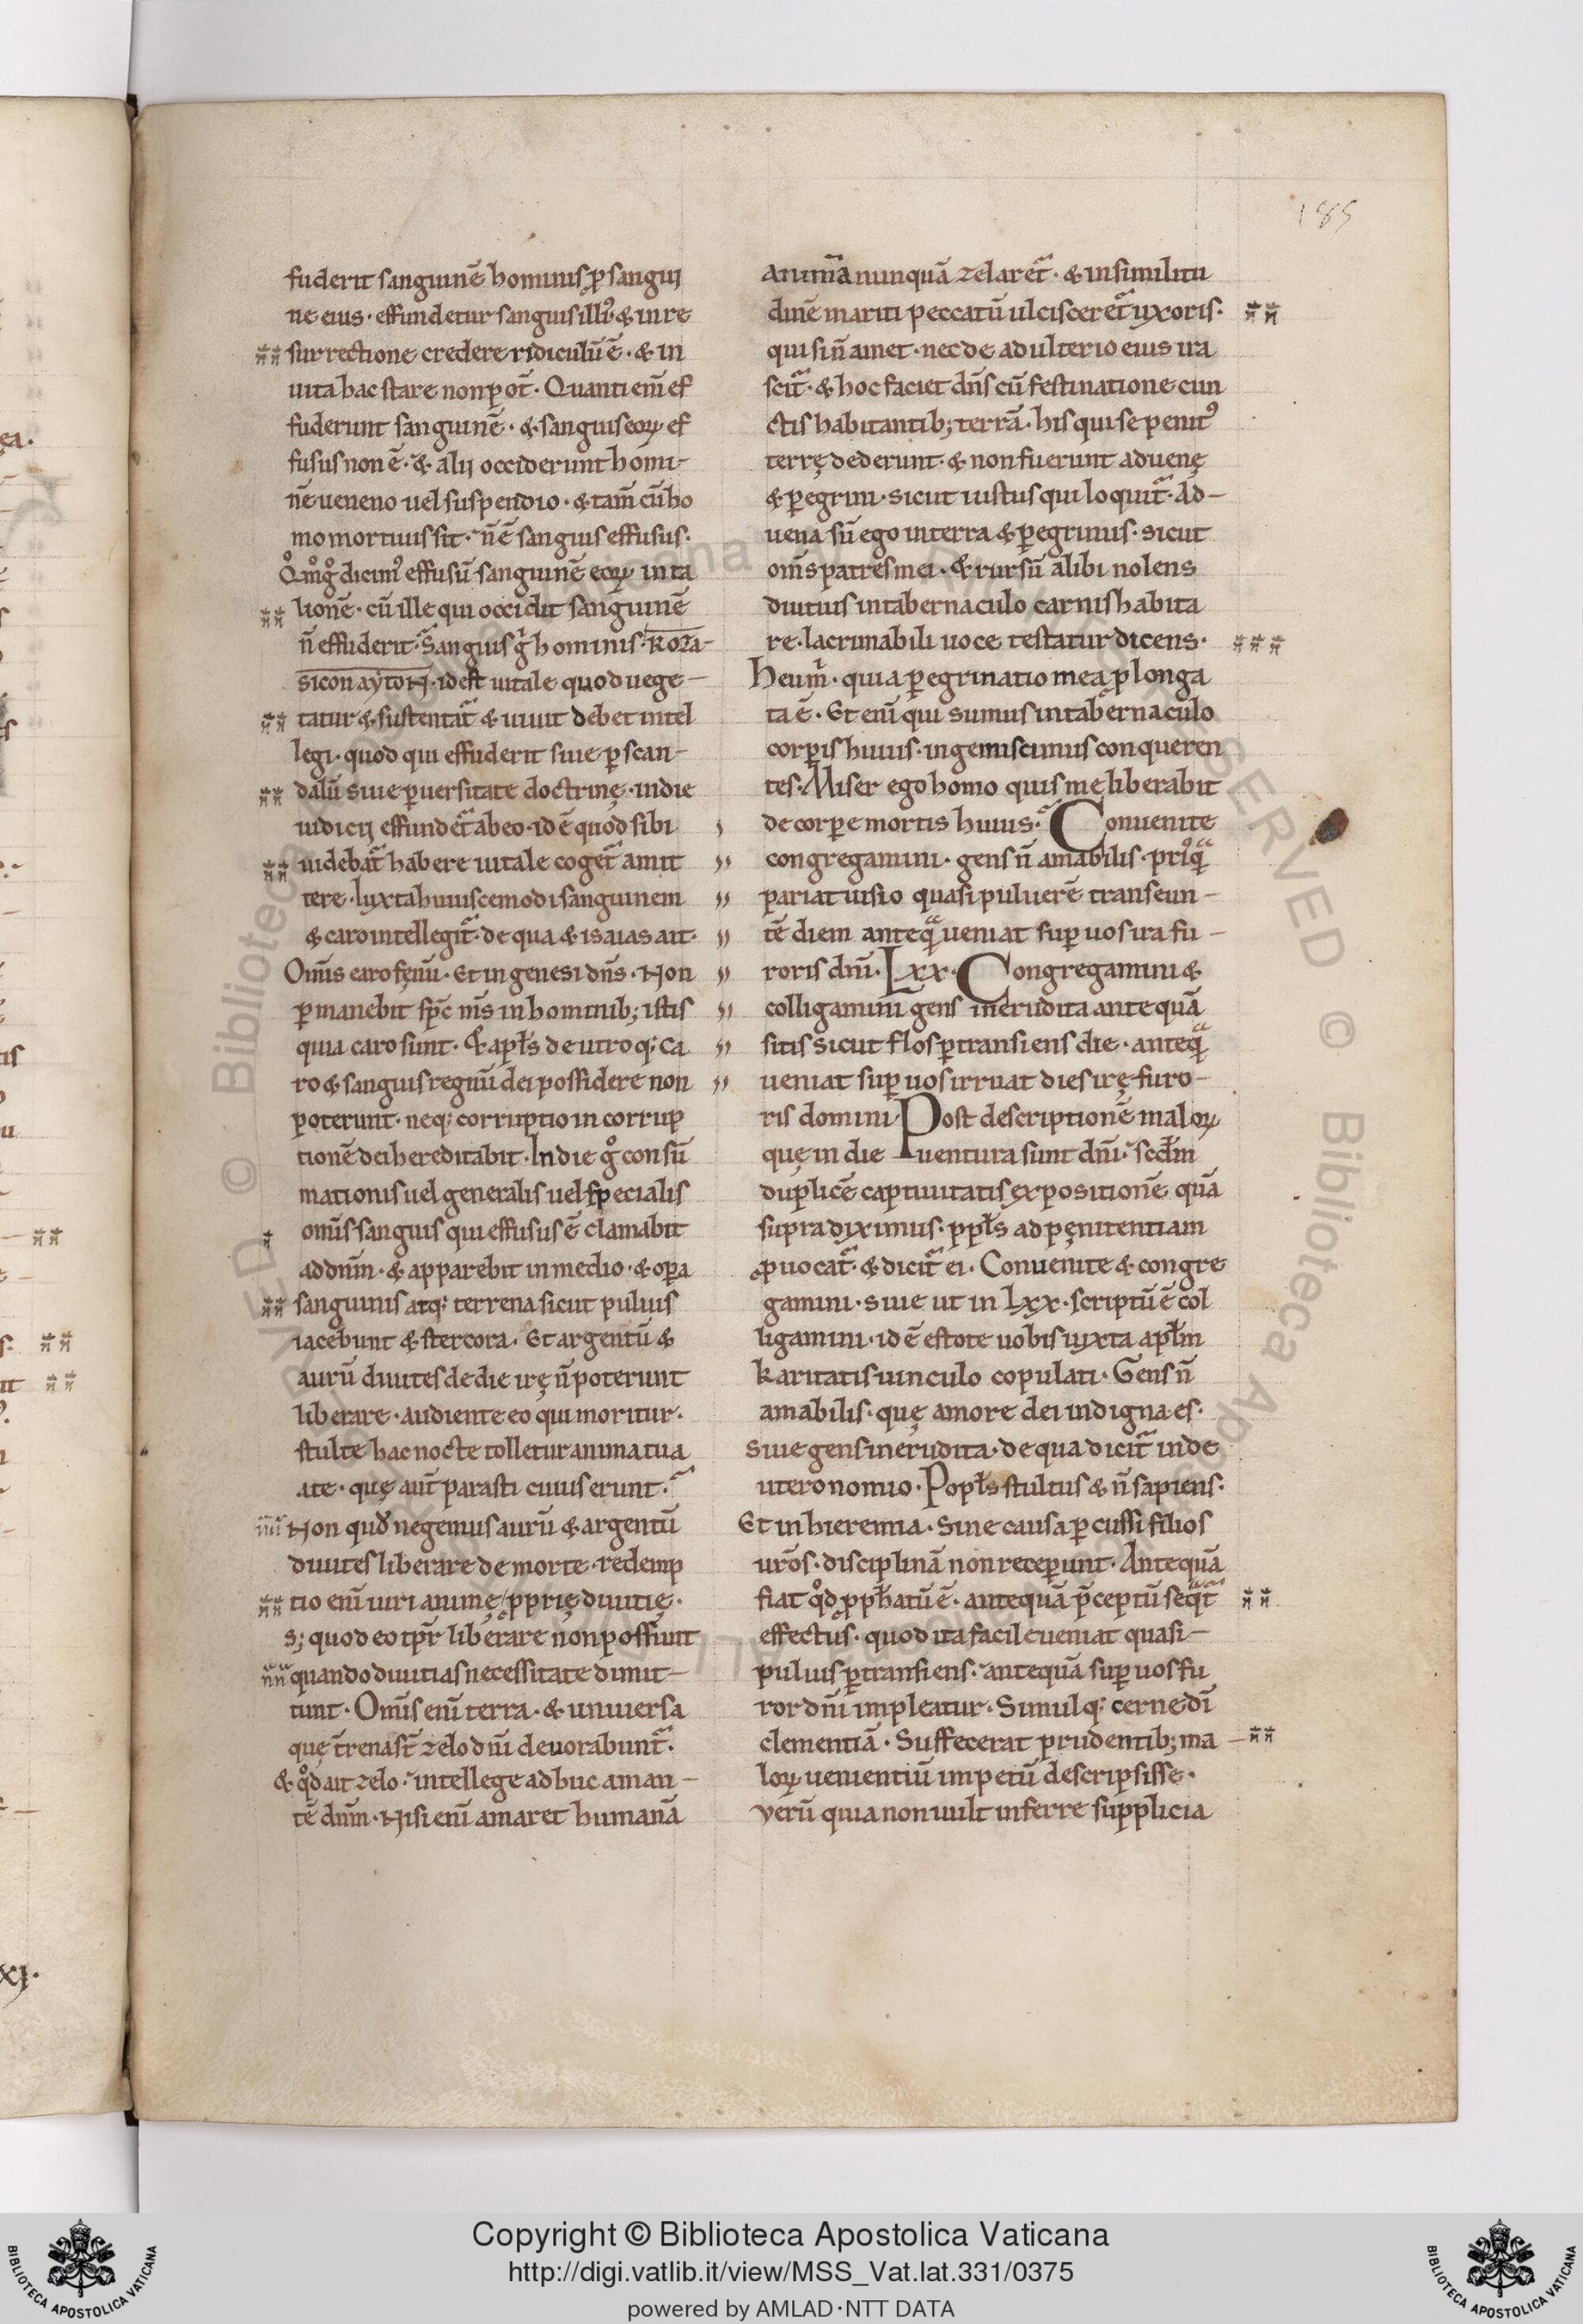 185
fuderit sanguinē hominis ꝓ sangui
ne eius · effundetur sanguis illiꝰ · & in re
surrectione credere ridiculū ē · & in
uita hac stare non pōt · Quanti eni̅ ef
fuderunt sanguinē · & sanguis eoꝝ ef
fusus non ē · & alij occiderunt homi-
nē ueneno uel suspendio · & tam̄ cū ho
mo mortuus sit · n̄ ē sanguis effusus ·
dicimꝰ effusū sanguinē eoꝝ in ta
lionē · cū ille qui occidit sanguinē
n̄ effuderit · Sanguis gͦ hominis · ROZA-
SICON AYTON · id est uitale quo uege-
tatur & sustentat̄ & uiuit debet intel
legi · quod qui effuderit siue ꝑ scan-
dalū siue ꝑuersitate doctrinę · in die
iudicij effundet̄ ab eo · id ē quod sibi
uidebat̄ habere uitale coget̄ amit
tere · Iuxta huiuscemodi sanguinem
& caro intellegit̄ · de qua & isaias ait ·
Om̄s caro fęnū · Et in genesi dn̄s · Non
ꝑmanebit sp̄c m̄s in hominib; istis
quia caro sunt · & apłs de utroq; ca
ro & sanguis regnū dei possidere non
poterunt · neq; corruptio incorrup
tionē dei hereditabit · In die gͦ consū
mationis uel generalis uel specialis
om̄s sanguis qui effusus ē clamabit
ad dn̄m · & apparebit in medio · & oꝑa
sanguinis atq; terrena sicut puluis
iacebunt & stercora · Et argentū &
aurū diuites de die irę n̄ poterunt
liberare · audiente eo qui moritur ·
stulte hac nocte tolletur anima tua
a te · quę aut̄ parasti cuius erunt ·
Non quod negemus aurū & argentū
diuites liberare de morte · redemp
tio eni̅ uiri animę ꝓprię diuitię ·
S; quod eo tp̄r liberare non possunt
quando diuitias necessitate dimit-
tunt · Om̄is eni̅ terra · & uniuersa
quę t̄rena st̄ zelo dn̄i deuorabunt̄ ·
& qd̄ ait zelo · intellege adhuc aman-
tē dn̄m · Nisi eni̅ amaret humanā
animā nunquā zelaret̄ · & in similitu
dinē mariti peccatū ulcisceret̄ uxoris ·
qui si n̄ amet · nec de adulterio eius ira
scit̄ · & hoc faciet dn̄s cū festinatione cun
ctis habitantib; terrā · his qui se penitꝰ
terrę dederunt · & non fuerunt aduenę
& ꝑegrini · sicut iustus qui loquit̄ · Ad-
uena sū ego in terra & ꝑegrinus · sicut
om̄s patres mei · & rursū alibi nolens
diutius in tabernaculo carnis habita
re · lacrimabili uoce testatur dicens ·
Heu m̄ · quia ꝑegrinatio mea ꝓlonga
ta ē · Et eni̅ qui sumus in tabernaculo
corꝑis huius · ingemiscimus conqueren
tes · Miser ego homo quis me liberabit
de corꝑe mortis huius · Conuenite
congregamini · gens n̄ amabilis · priusq̄
pariat iussio quasi puluerē transeun-
tē diem anteq̄ ueniat suꝑ uos ira fu-
roris dn̄i · Lxx · Congregamini &
colligamini gens inerudita antequā
sitis sicut flos ꝑtransiens die · anteq̄
ueniat suꝑ uos irruat dies irę furo-
ris domini Post descriptionē maloꝝ
quę in die uentura sunt dn̄i · scd̄m
duplicē captiuitatis expositionē quā
supra diximus · ꝓpłs ad pęnitentiam
ꝓuocat̄ · & dicit̄ ei · Conuenite & congre
gamini · siue ut in Lxx · scriptū ē col
ligamini · id ē estote uobis iuxta apłm
karitatis uinculo copulati · Gens n̄
amabilis · quę amore dei indigna es ·
Siue gens inerudita · de qua dicit̄ in de
uteronomio · Popłs stultus & n̄ sapiens ·
Et in hieremia · Sine causa ꝑcussi filios
uros · disciplinā non receꝑunt · Antequā
fiat qd̄ ꝓphatū ē · antequā p̄ceptū seqt̄
effectus · quod ita facile ueniat quasi-
puluis ꝑtransiens · antequā suꝑ uos fu
ror dn̄i impleatur · Simulq; cerne dī
clementiā · Suffecerat prudentib; ma-
loꝝ uenientiū impetū descripsisse ·
Verū quia non uult inferre supplicia
XI ·
Copyright © Biblioteca Apostolica Vaticana
http://digi.vatlib.it/view/MSS_Vat.lat.331/0375
powered by AMLAD·NTT DATA
BIBLIOTECA APOSTOLICA VATICANA
BIBLIOTECA APOSTOLICA VATICANA